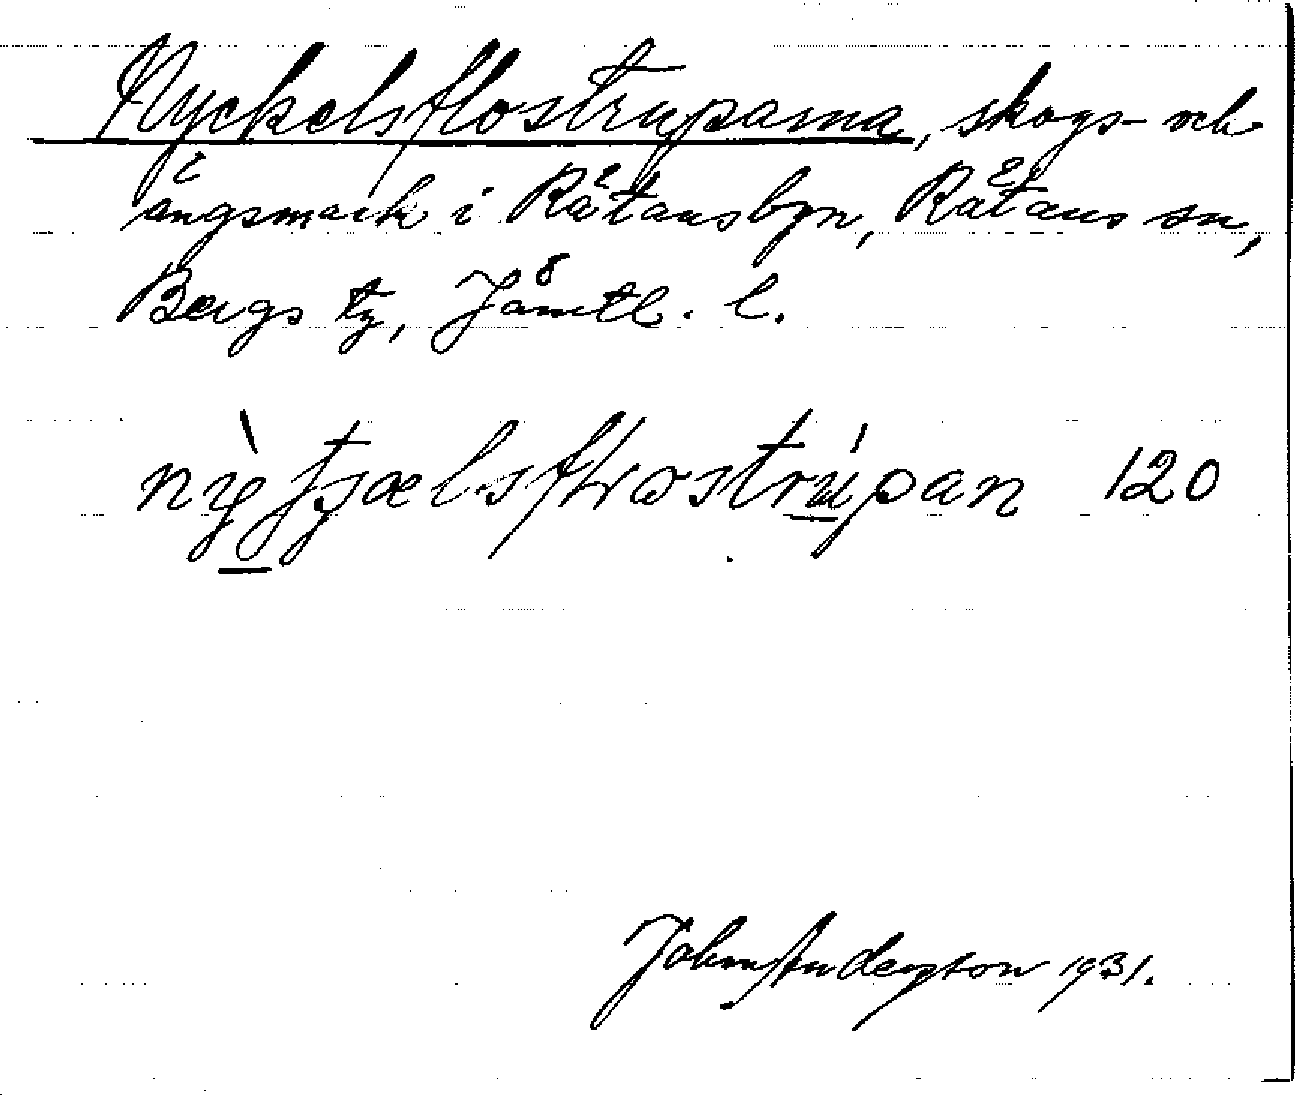 Nyckelsflostruparna, skogs- och
ängsmark i Rätansbyn, Rätans sn,
Bergs tg, Jämtl. l.
120
John Anderson 1931.